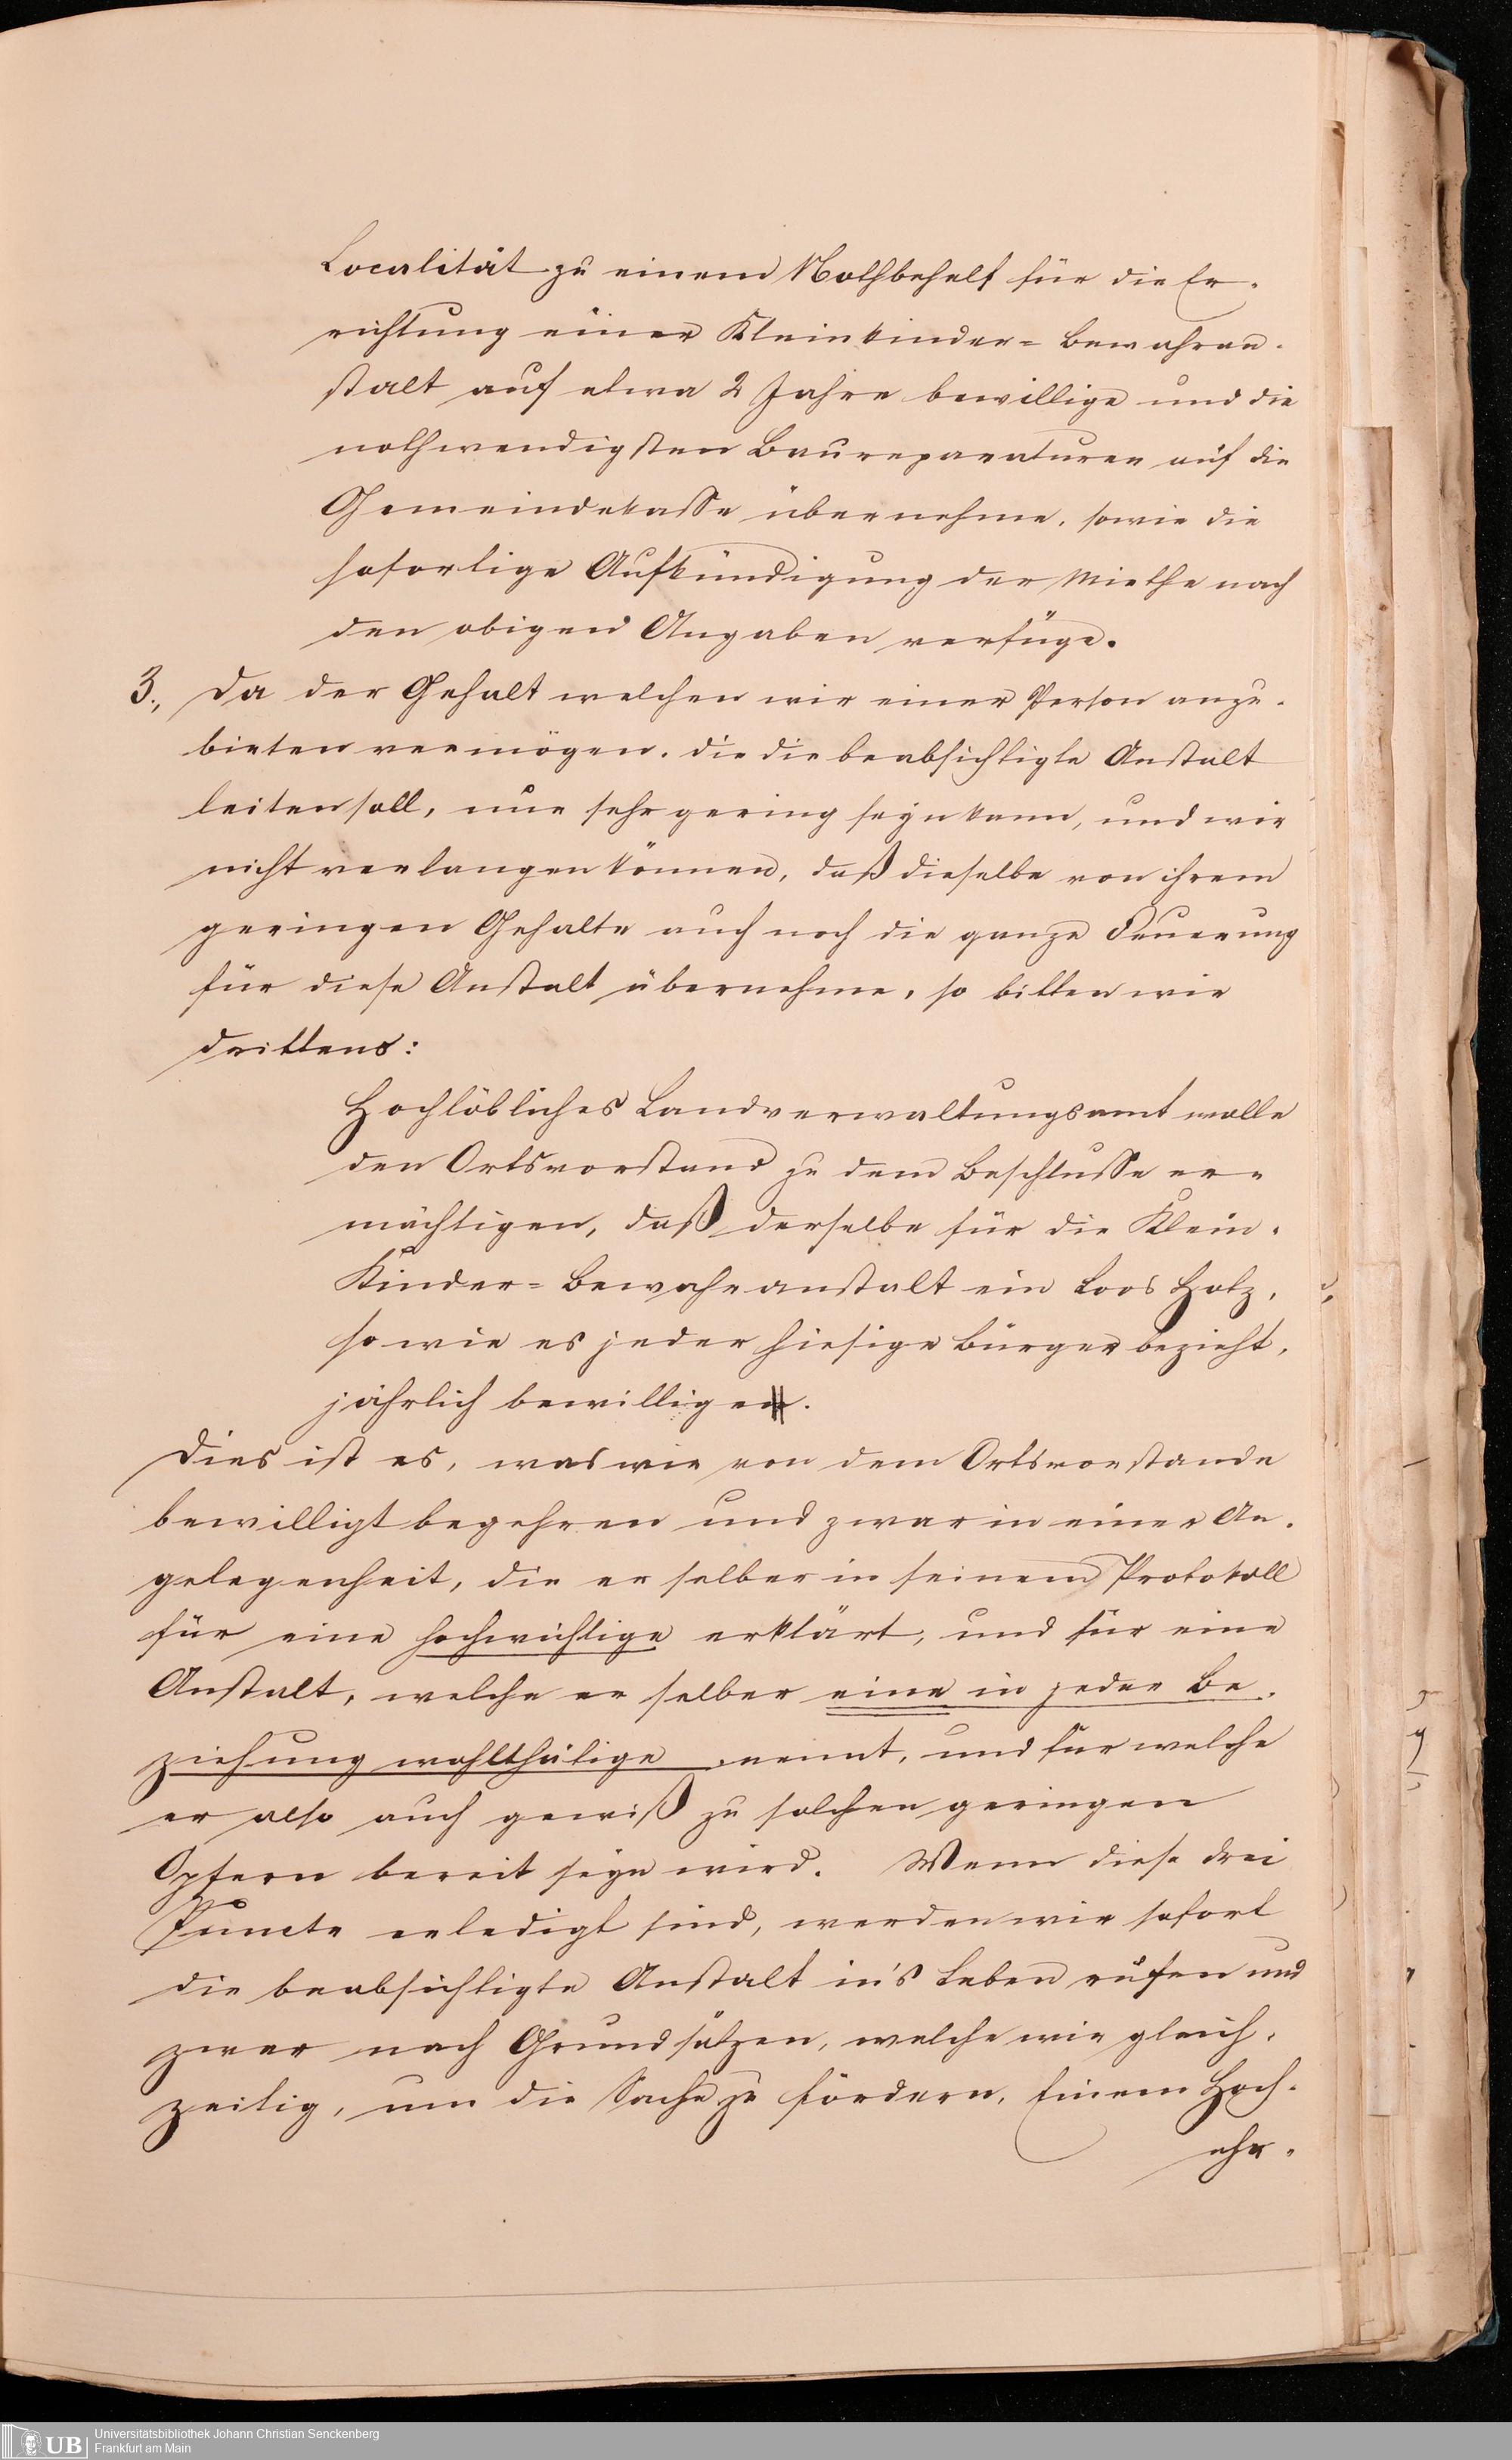 Localität zu einem Nothbehelf für die Er-
richtung einer Kleinkinder-Bewahran-
stalt auf etwa 2 Jahre bewillige und die
nothwendigsten Baureparaturen auf die
Gemeindekasse übernehme, sowie die
sofortige Aufkündigung der Miethe nach
den obigen Angaben verfüge.
3., Da der Gehalt welchen wir einer Person anzu-
bieten vermögen, die die beabsichtigte Anstalt
leiten soll, nur sehr gering seyn kann, und wir
nicht verlangen können, daß dieselbe von ihrem
geringen Gehalte auch noch die ganze Feuerung
für diese Anstalt übernehme, so bitten wir
drittens:
Hochlöbliches Landverwaltungsamt wolle
den Ortsvorstand zu dem Beschlusse er-
mächtigen, daß derselbe für die Klein-
Kinder-Bewahranstalt ein Loos Holz,
so wie es jeder hiesige Bürger bezieht,
jährlich bewilligen.
Dies ist es, was wir von dem Ortsvorstande
bewilligt begehren und zwar in einer An-
gelegenheit, die er selber in seinem Protokoll
für eine hochwichtige erklärt, und für eine
Anstalt, welche er selber eine in jeder Be-
ziehung wohlthätige nennt, und für welche
er also auch gewiß zu solchen geringen
Opfern bereit seyn wird. Wenn diese drei
Puncte erledigt sind, werden wir sofort
die beabsichtigte Anstalt in's Leben rufen und
zwar nach Grundsätzen, welche wir gleich-
zeitig, um die Sache zu fördern, Einem Hoch-
ehr-
UB Universitätsbibliothek Johann Christian Senckenberg
Frankfurt am Main